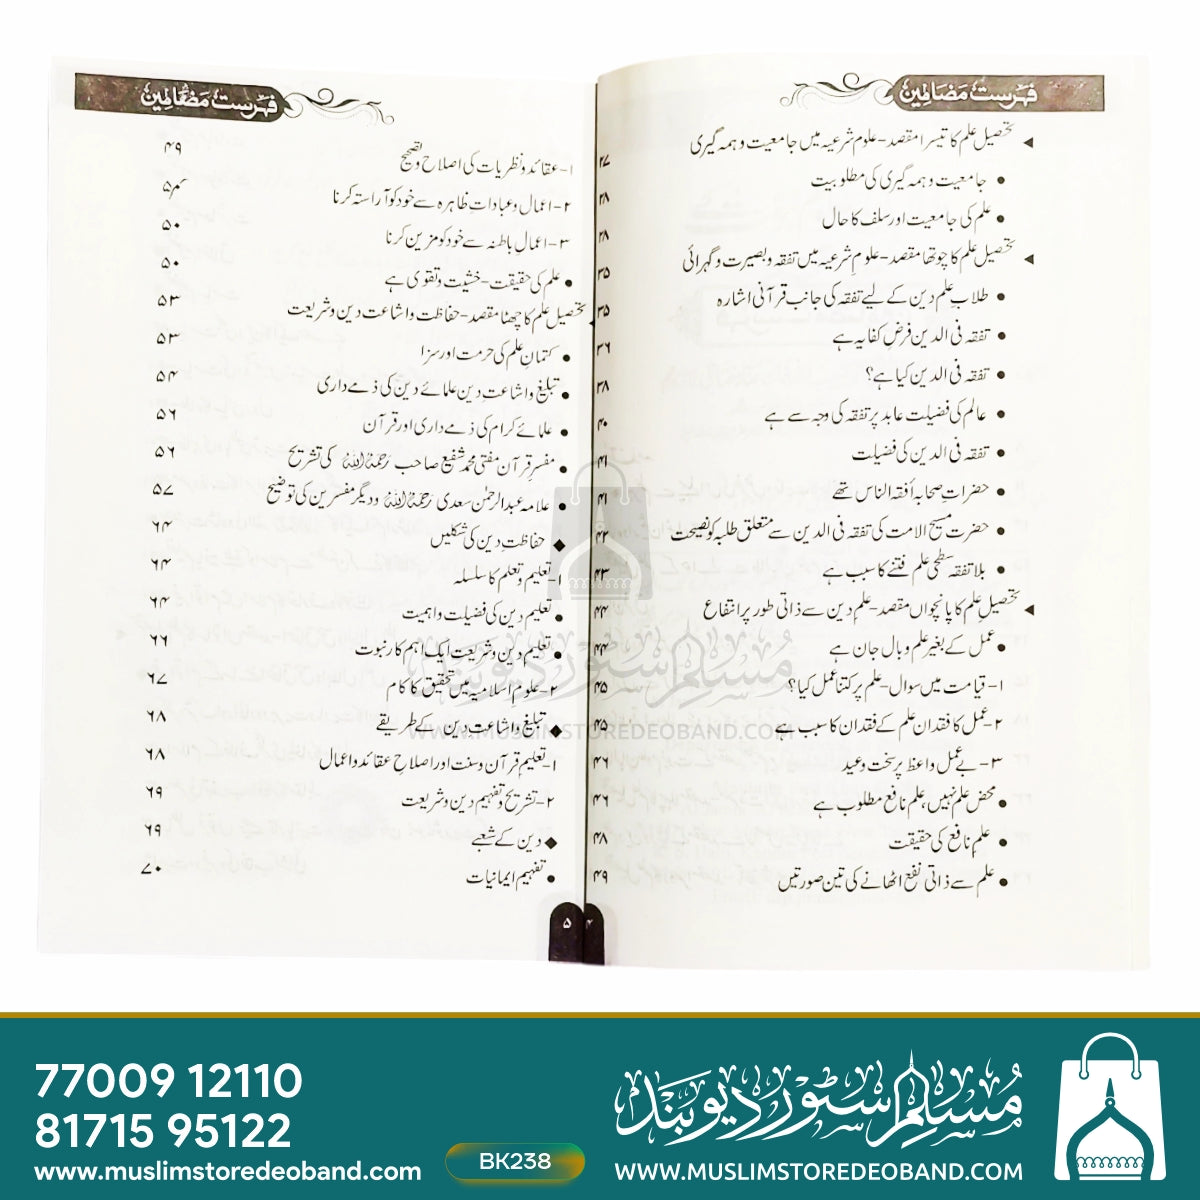 فہرست مضامین
تحصیل علم کا تیسرا مقصد- علوم شرعیہ میں جامعیت و ہمہ گیری ۲۷
جامعیت و ہمہ گیری کی مطلوبیت ۲۸
علم کی جامعیت اور سلف کا حال ۲۸
تحصیل علم کا چوتھا مقصد- علوم شرعیہ میں تفقہ و بصیرت و گہرائی ۳۵
طلابِ علم دین کے لیے تفقہ کی جانب قرآنی اشارہ ۳۵
تفقہ فی الدین فرض کفایہ ہے ۳۶
تفقہ فی الدین کیا ہے؟ ۳۸
عالم کی فضیلت عابد پر تفقہ کی وجہ سے ہے ۴۰
تفقہ فی الدین کی فضیلت ۴۱
حضراتِ صحابہ أفقہ الناس تھے ۴۱
حضرت مسیح الامت کی تفقہ فی الدین سے متعلق طلبہ کو نصیحت ۴۲
بلا تفقہ سطحی علم فتنے کا سبب ہے ۴۳
تحصیلِ علم کا پانچواں مقصد- علمِ دین سے ذاتی طور پر انتفاع ۴۴
عمل کے بغیر علم وبال جان ہے ۴۴
۱- قیامت میں سوال- علم پر کتنا عمل کیا؟ ۴۵
۲- عمل کا فقدان علم کے فقدان کا سبب ہے ۴۵
۳- بے عمل واعظ پر سخت وعید ۴۶
محض علم نہیں، علم نافع مطلوب ہے ۴۶
علمِ نافع کی حقیقت ۴۸
علم سے ذاتی نفع اٹھانے کی تین صورتیں ۴۹
۴
فہرست مضامین
۱- عقائد و نظریات کی اصلاح و تصحیح ۴۹
۲- اعمال و عباداتِ ظاہرہ سے خود کو آراستہ کرنا
۳- اعمالِ باطنہ سے خود کو مزین کرنا ۵۰
علم کی حقیقت- خشیت و تقوی ہے ۵۰
تحصیل علم کا چھٹا مقصد- حفاظت و اشاعت دین و شریعت ۵۳
کتمانِ علم کی حرمت اور سزا ۵۳
تبلیغ و اشاعتِ دین علمائے دین کی ذمے داری ۵۴
علمائے کرام کی ذمے داری اور قرآن ۵۶
مفسرِ قرآن مفتی محمد شفیع صاحب رحمہ اللہ کی تشریح ۵۶
علامہ عبدالرحمٰن سعدی رحمہ اللہ و دیگر مفسرین کی توضیح ۵۷
حفاظتِ دین کی شکلیں ۶۴
۱- تعلیم و تعلم کا سلسلہ ۶۴
تعلیم دین کی فضیلت و اہمیت ۶۴
تعلیم دین و شریعت ایک اہم کارِ نبوت ۶۶
۲- علوم اسلامیہ میں تحقیق کا کام ۶۷
تبلیغ و اشاعتِ دین کے طریقے ۶۸
۱- تعلیم قرآن و سنت اور اصلاح عقائد و اعمال ۶۸
۲- تشریح و تفہیم دین و شریعت ۶۹
دین کے شعبے ۶۹
تفہیم ایمانیات ۷۰
۵
مسلم سٹور دیوبند
WWW.MUSLIMSTOREDEOBAND.COM
77009 12110
81715 95122
www.muslimstoredeoband.com
BK238
مسلم سٹور دیوبند
WWW.MUSLIMSTOREDEOBAND.COM